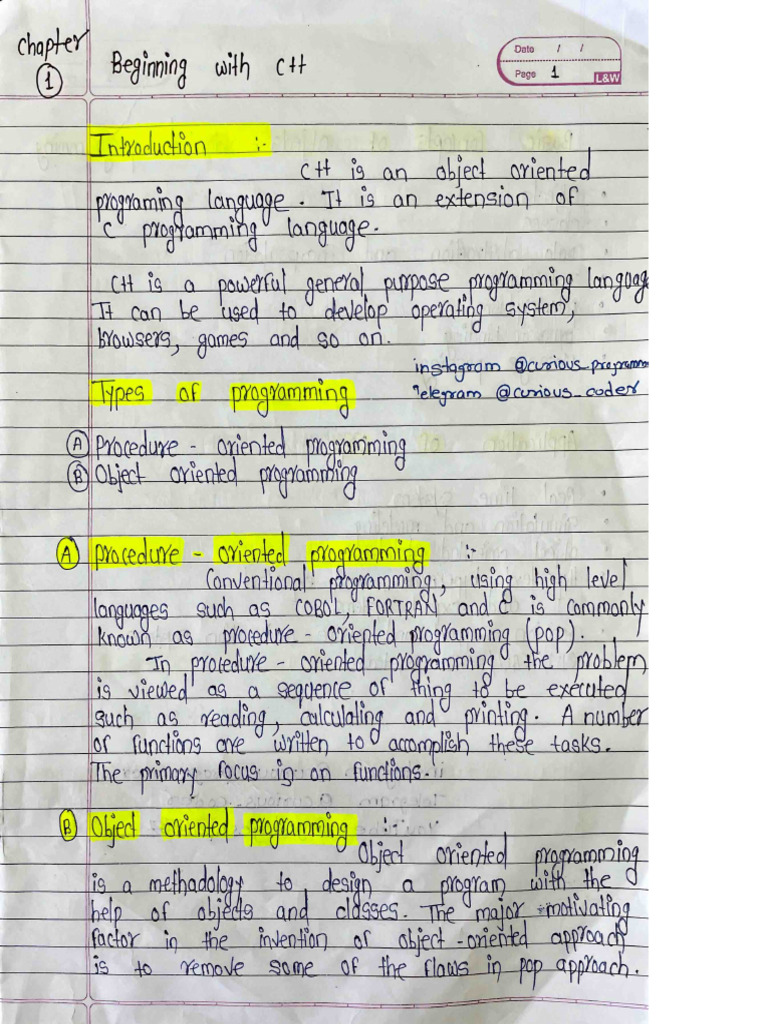 Chapter
1
Beginning with C++
Date / /
Page 1
L&W
Introduction :-
C++ is an object oriented
programing language. It is an extension of
C programming language.
C++ is a powerful general purpose programming languag
It can be used to develop operating system,
browsers, games and so on.
instagram @curious_programm
Telegram @curious_coder
Types of programming
A Procedure - oriented programming
B Object oriented programming
A procedure - oriented programming :-
Conventional programming, using high level
languages such as COBOL, FORTRAN and C is commonly
known as procedure - oriented programming (pop).
In procedure - oriented programming the problem
is viewed as a sequence of thing to be executed
such as reading, calculating and printing. A number
of functions are written to accomplish these tasks.
The primary focus is on functions.
B Object oriented programming :-
Object oriented programming
is a methadology to design a program with the
help of objects and classes. The major motivating
factor in the invention of object-oriented approach
is to remove some of the flaws in pop approach.